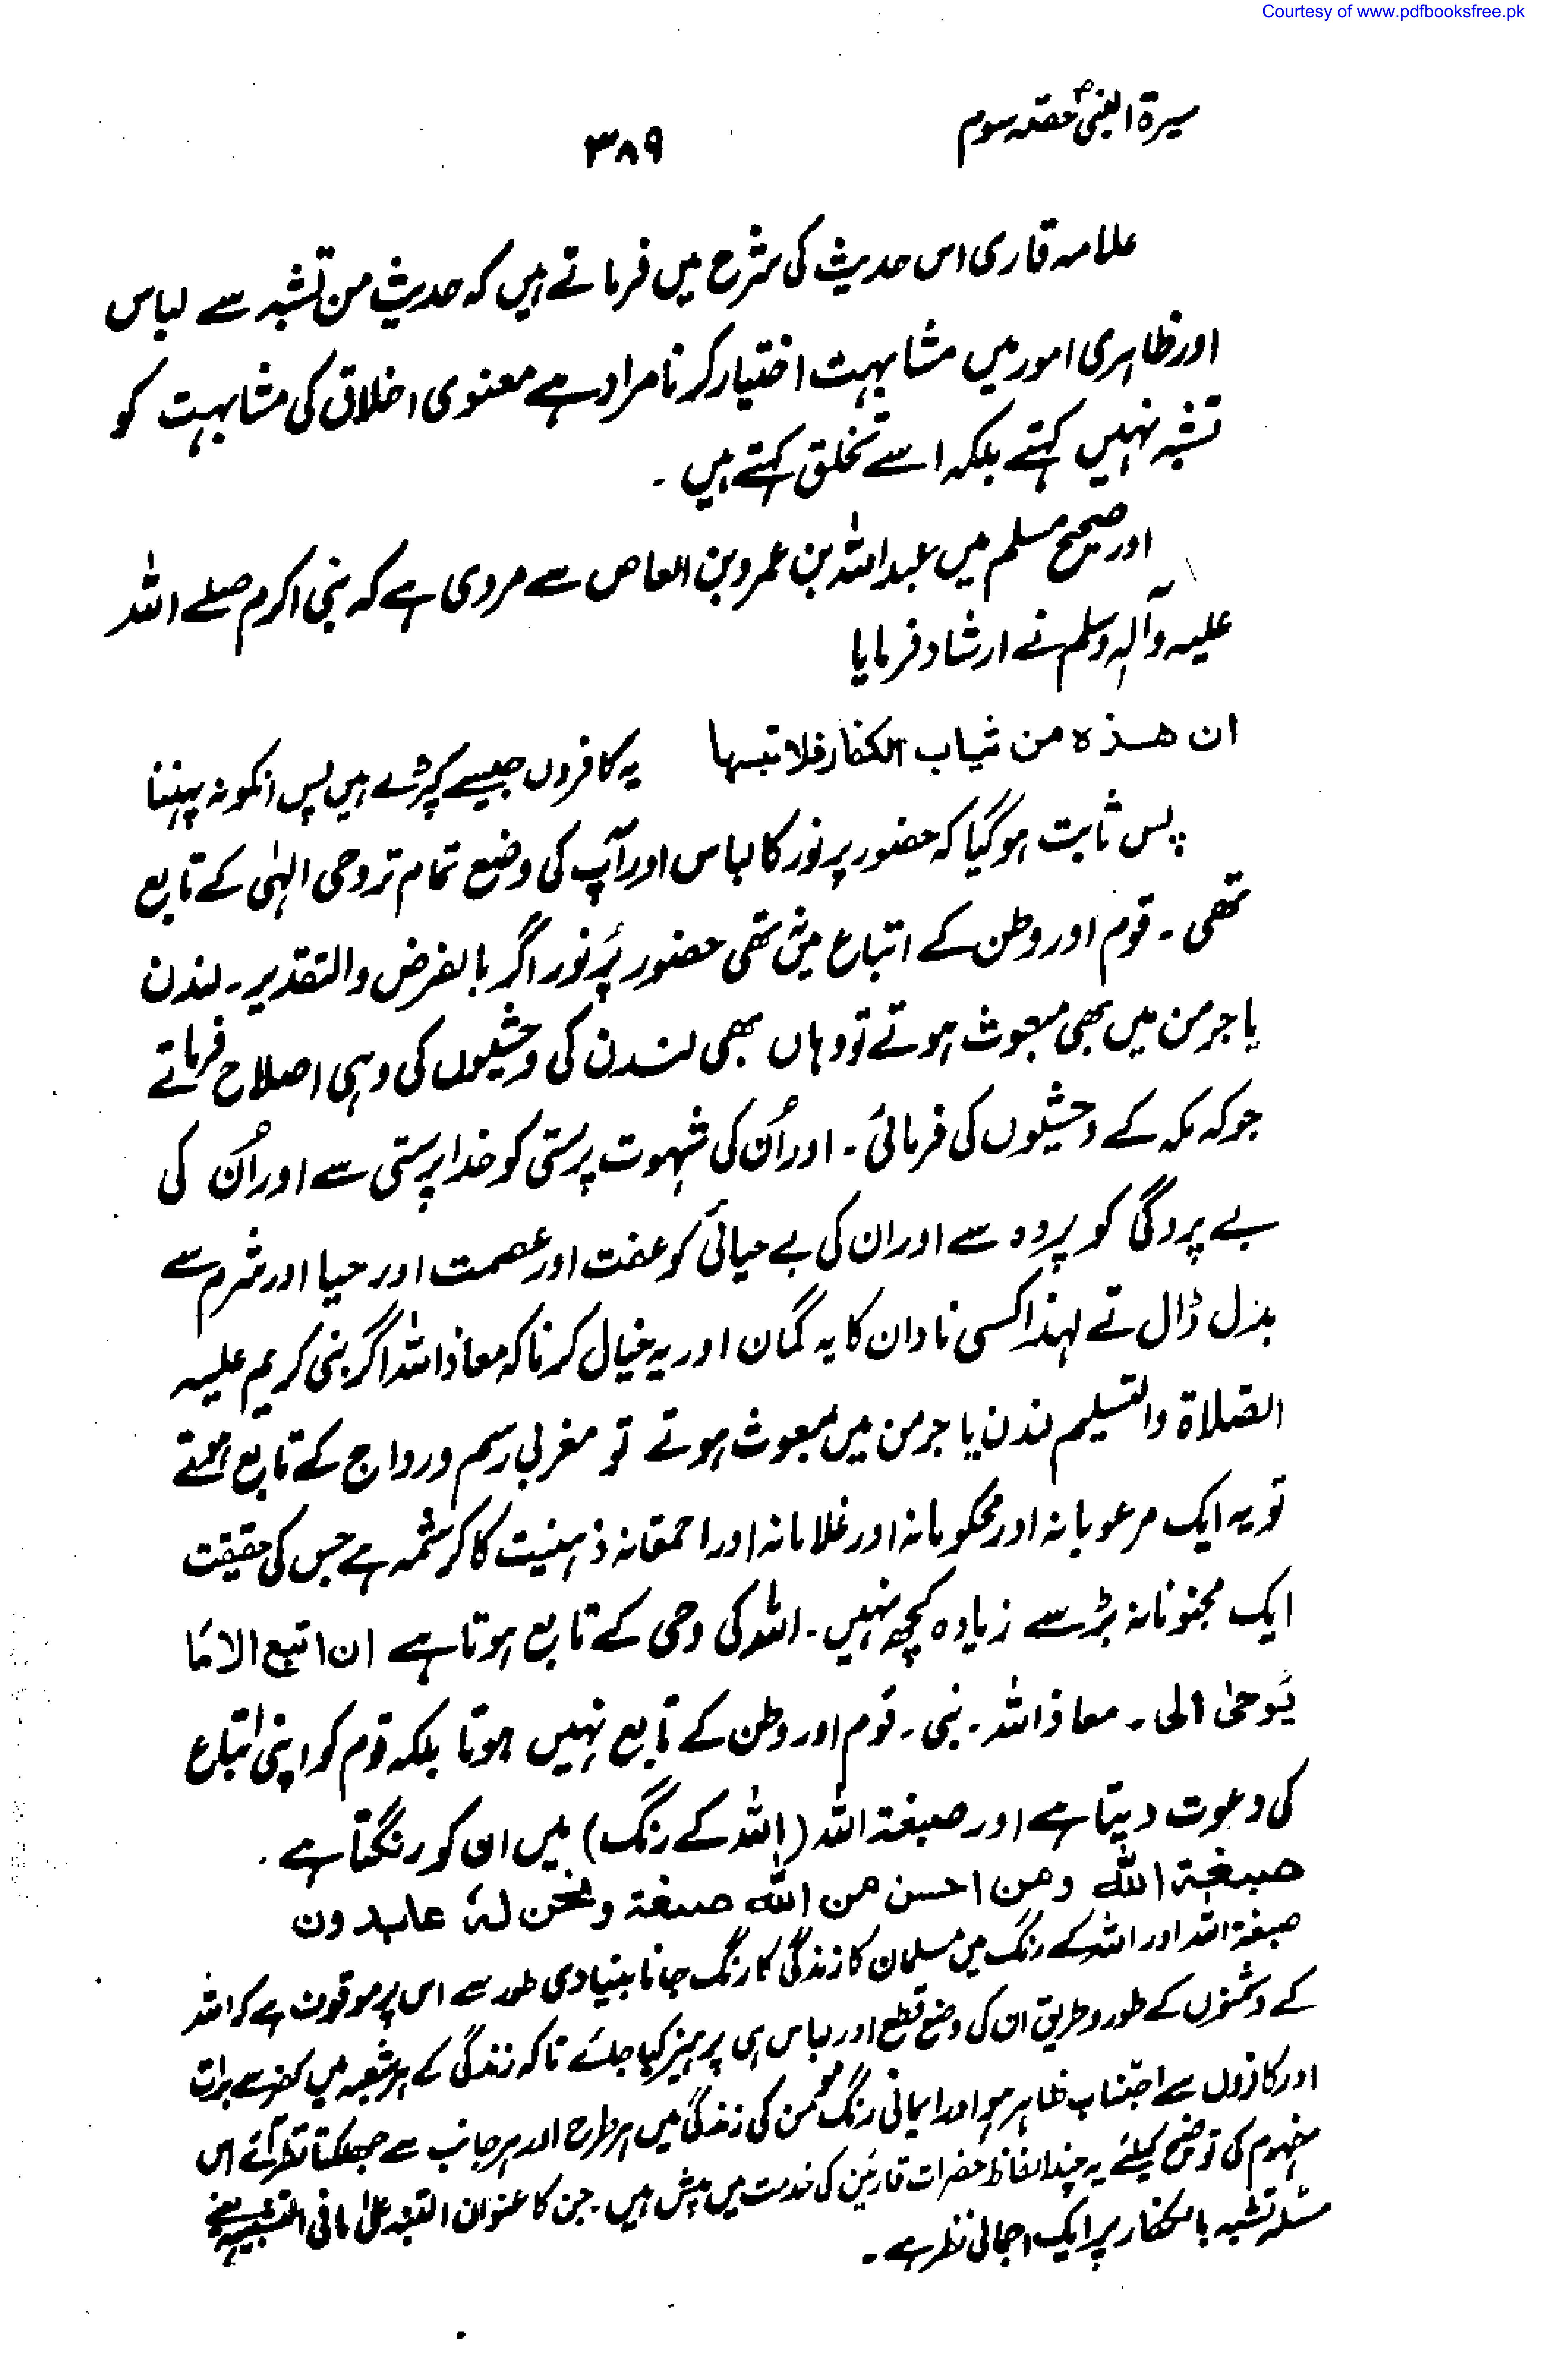 Courtesy of www.pdfbooksfree.pk
سیرۃ النبیؐ حصہ سوم
۳۸۹
علامہ قاری اس حدیث کی شرح میں فرماتے ہیں کہ حدیث من تشبہ سے لباس
اور ظاہری امور میں مشابہت اختیار کرنا مراد ہے معنوی اخلاق کی مشابہت کو
تشبہ نہیں کہتے بلکہ اسے تخلق کہتے ہیں ۔
اور صحیح مسلم میں عبداللہ بن عمرو بن العاص سے مروی ہے کہ نبی اکرم صلے اللہ
علیہ وآلہٖ وسلم نے ارشاد فرمایا
ان ھذہ من ثیاب الکفار فلا تبسہا یہ کافروں جیسے کپڑے ہیں پس انکو نہ پہننا
پس ثابت ہوگیا کہ حضور پر نور کا لباس اور آپ کی وضع تمام تر وحی الٰہی کے تابع
تھی ۔ قوم اور وطن کے اتباع میں تھی حضور پُر نور اگر بالفرض والتقدیر ۔ لندن
یا جرمن میں بھی مبعوث ہوتے تو وہاں بھی لندن کی وحشیوں کی وہی اصلاح فرماتے
جو کہ مکہ کے وحشیوں کی فرمائی ۔ اور اُن کی شہوت پرستی کو خدا پرستی سے اور اُن کی
بے پردگی کو پردہ سے اور ان کی بے حیائی کو عفت اور عصمت اور حیا اور شرم سے
بدل ڈال تے لہذا کسی نادان کا یہ گمان اور یہ خیال کرنا کہ معاذ اللہ اگر نبی کریم علیہ
الصلاۃ والتسلیم لندن یا جرمن میں مبعوث ہوتے تو مغربی رسم و رواج کے تابع ہوتے
تو یہ ایک مرعوبانہ اور محکومانہ اور غلامانہ اور احمقانہ ذہنیت کا کرشمہ ہے جس کی حقیقت
ایک مجنونانہ بڑ سے زیادہ کچھ نہیں ۔ اللہ کی وحی کے تابع ہوتا ہے ان اتبع الا مَا
یُوحیٰ الی ۔ معاذ اللہ ۔ نبی ۔ قوم اور وطن کے تابع نہیں ہوتا بلکہ قوم کو اپنی اتباع
کی دعوت دیتا ہے اور صبغۃ اللہ (اللہ کے رنگ) میں ان کو رنگتا ہے ۔
صبغۃ اللہ ومن احسن من اللہ صبغۃ ونحن لہٗ عابدون
صبغۃ اللہ اور اللہ کے رنگ میں مسلمان کا زندگی کا رنگ جانا بنیادی طور سے اس پر موقوف ہے کہ اللہ
کے دشمنوں کے طور و طریق ان کی وضع قطع اور لباس ہی پرہیز کیا جائے تاکہ زندگی کے ہر شعبہ میں کفر سے برات
اور کافروں سے اجتناب ظاہر ہو اور ایمانی رنگ مومن کی زندگی میں ہر طرح اور ہر جانب سے جھلکتا نظر آئے اس
مفہوم کی توضیح کیلئے یہ چند الفاظ حضرات قارئین کی خدمت میں پیش ہیں ۔ جن کا عنوان التنبہ علیٰ مافی التشبہ یعنے
مسئلہ تشبہ بالکفار پر ایک اجمالی نظر ہے ۔